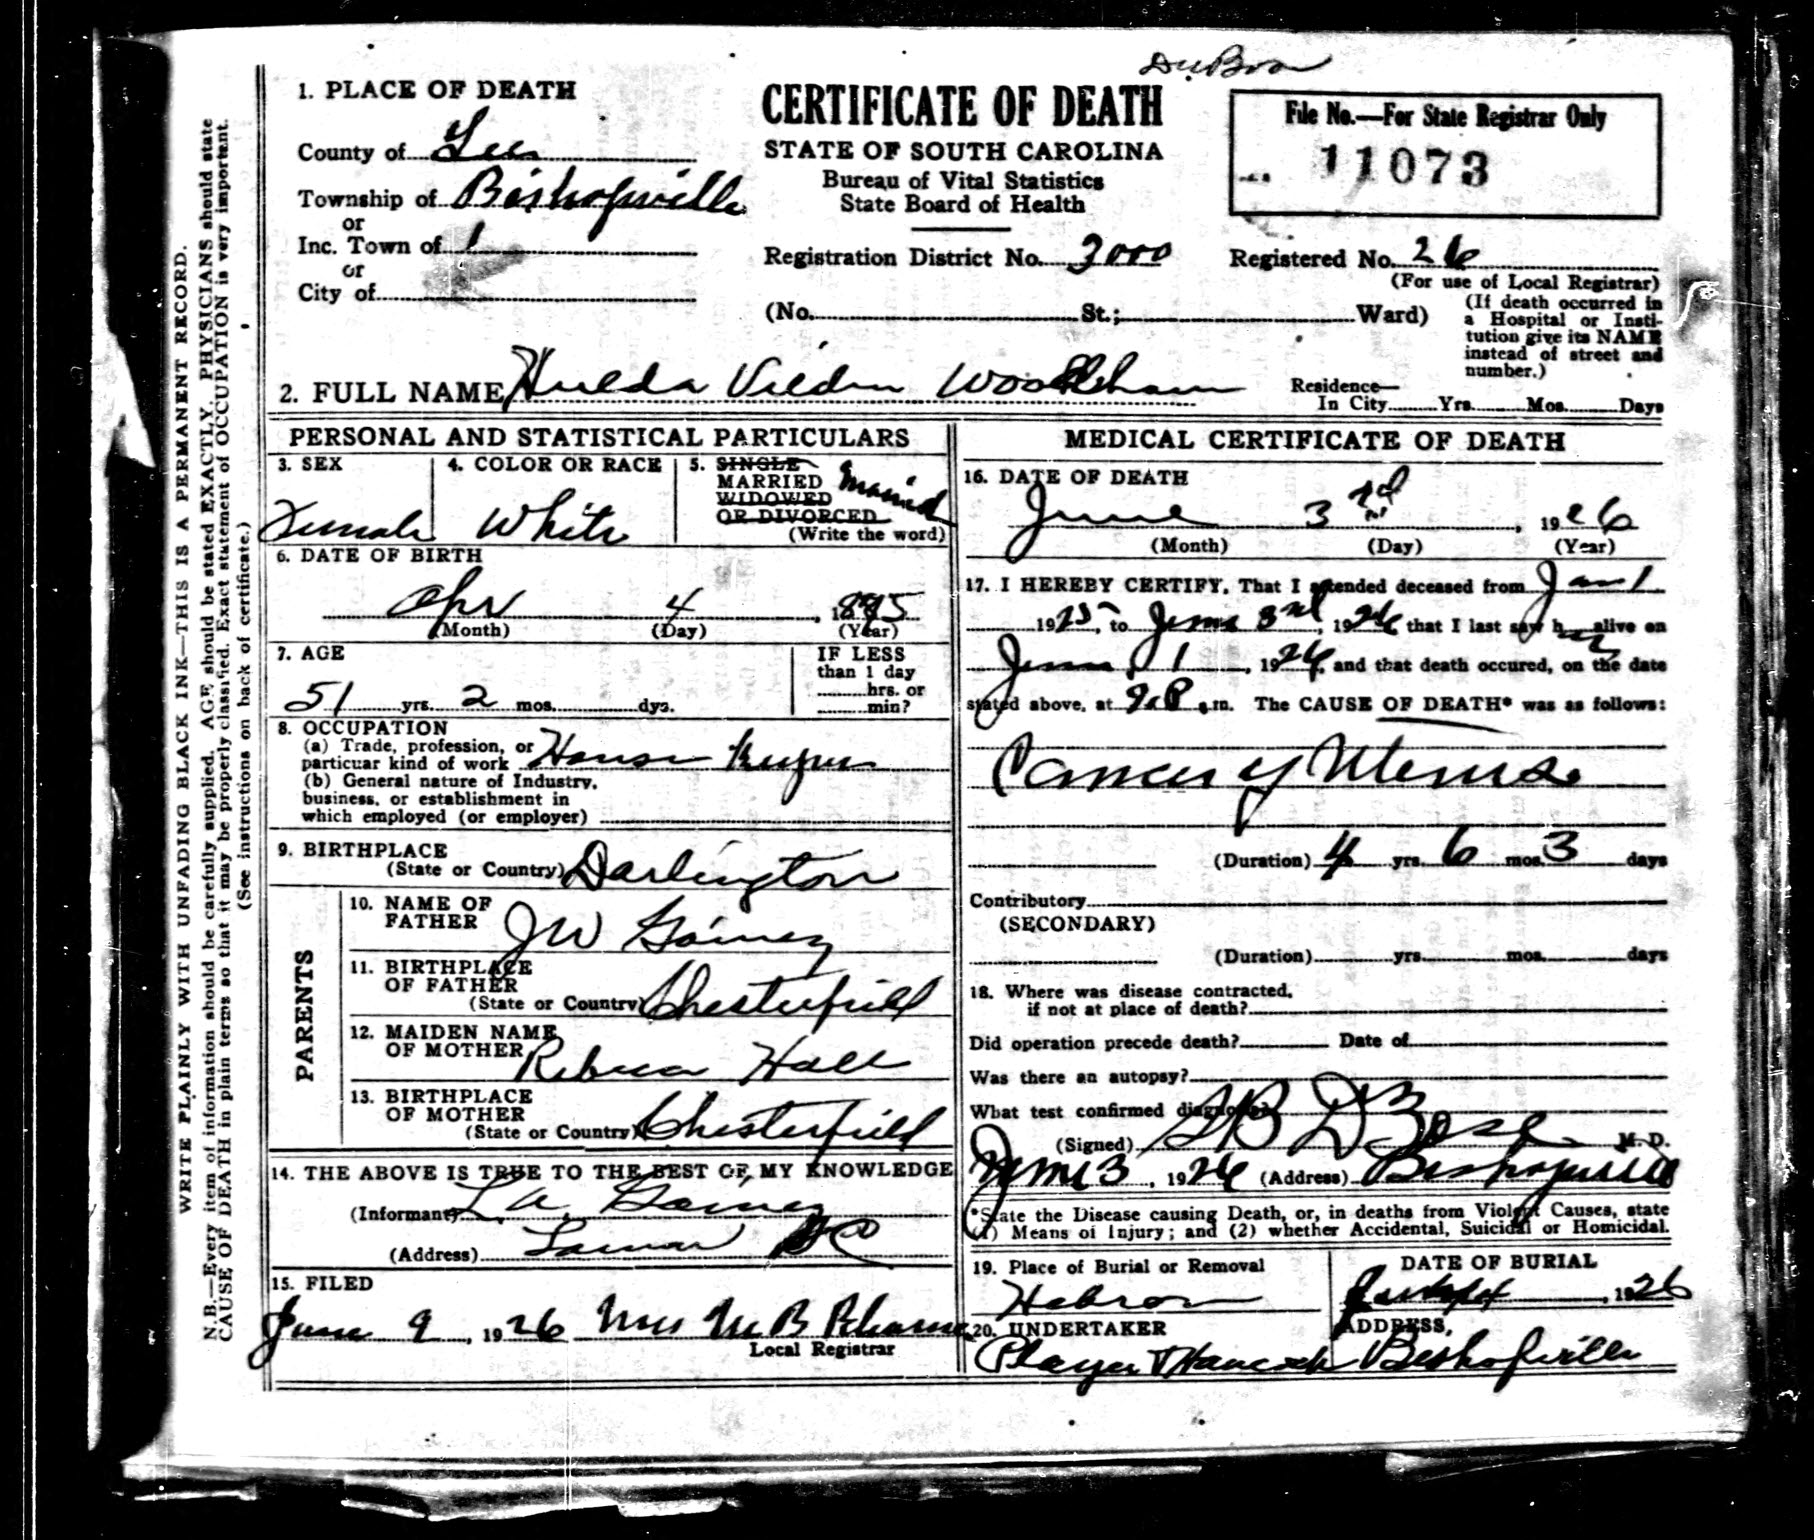 1. PLACE OF DEATH
County of Lee
Township of Bishopville
or
Inc. Town of 1
or
City of
CERTIFICATE OF DEATH
STATE OF SOUTH CAROLINA
Bureau of Vital Statistics
State Board of Health
File No.—For State Registrar Only
11073
Registration District No. 3000
Registered No. 26
(For use of Local Registrar)
(No. St.; Ward)
(If death occurred in
a Hospital or Insti-
tution give its NAME
instead of street and
number.)
2. FULL NAME Hulda Woodham
Residence—
In City Yrs. Mos. Days
PERSONAL AND STATISTICAL PARTICULARS
3. SEX
Female
4. COLOR OR RACE
White
5. SINGLE
MARRIED
WIDOWED
OR DIVORCED
Married
(Write the word)
6. DATE OF BIRTH
Apr 4, 1875
(Month) (Day) (Year)
7. AGE
51 yrs. 2 mos. dys.
IF LESS
than 1 day
hrs. or
min?
8. OCCUPATION
(a) Trade, profession, or
particuar kind of work House Keeper
(b) General nature of Industry,
business, or establishment in
which employed (or employer)
9. BIRTHPLACE
(State or Country) Darlington
PARENTS
10. NAME OF
FATHER J W Gainey
11. BIRTHPLACE
OF FATHER
(State or Country) Chesterfield
12. MAIDEN NAME
OF MOTHER Rebecca Hall
13. BIRTHPLACE
OF MOTHER
(State or Country) Chesterfield
14. THE ABOVE IS TRUE TO THE BEST OF MY KNOWLEDGE
(Informant) L. A. Gainey
(Address) Lamar SC
15. FILED
June 9, 1926 Mrs M B Rhame
Local Registrar
MEDICAL CERTIFICATE OF DEATH
16. DATE OF DEATH
June 3rd, 1926
(Month) (Day) (Year)
17. I HEREBY CERTIFY, That I attended deceased from Jan 1
1925, to June 3rd, 1926 that I last saw her alive on
June 1, 1926, and that death occured, on the date
stated above, at P.m. The CAUSE OF DEATH* was as follows:
Cancer of Uterus
(Duration) 4 yrs. 6 mos. 3 days
Contributory
(SECONDARY)
(Duration) yrs. mos. days
18. Where was disease contracted,
if not at place of death?
Did operation precede death? Date of
Was there an autopsy?
What test confirmed diagnosis?
(Signed) M. D.
June 3, 1926 (Address) Bishopville
*State the Disease causing Death, or, in deaths from Violent Causes, state
(1) Means of Injury; and (2) whether Accidental, Suicidal or Homicidal.
19. Place of Burial or Removal
Hebron
DATE OF BURIAL
, 1926
20. UNDERTAKER
Player & Hancock
ADDRESS,
Bishopville
WRITE PLAINLY WITH UNFADING BLACK INK—THIS IS A PERMANENT RECORD.
N.B.—Every item of information should be carefully supplied. AGE should be stated EXACTLY. PHYSICIANS should state
CAUSE OF DEATH in plain terms so that it may be properly classified. Exact statement of OCCUPATION is very important.
(See instructions on back of certificate.)